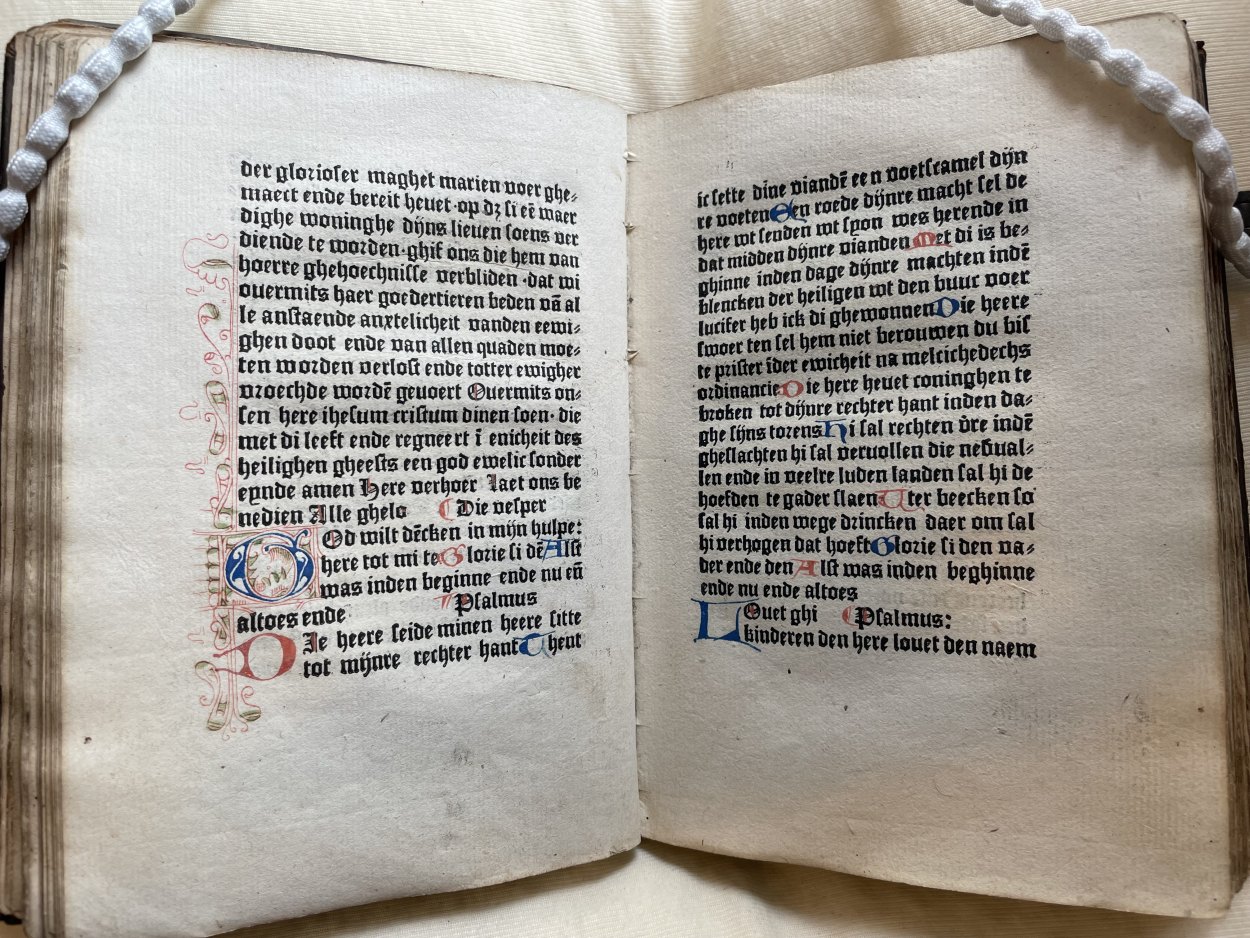 der glorioser maghet marien voer ghe-
maect ende bereit hevet·op dz si eñ waer
dighe woninghe dijns lieuen soens ver
diende te worden·ghif ons die hem van
hoerre ghehoechnisse verbliden·dat wi
ouermits haer goedertieren beden vā al
le anstaende anxtelicheit vanden eewi-
ghen doot ende van allen quaden moe-
ten worden verlost ende totter ewigher
vroechde wordē gevoert Ouermits on-
sen here ihesum cristum dinen soen·die
met di leeft ende regneert ī enicheit des
heilighen gheests een god ewelic sonder
eynde amen Here verhoer Laet ons be
nedien Alle ghelo Die vesper
GOd wilt dēcken in mijn hulpe:
here tot mi te Glorie si dē Alst
was inden beginne ende nu eñ
altoes ende Psalmus
DIe heere seide minen heere sitte
tot mijnre rechter hant Thent
ic sette dīne viandē een voetscamel dijn
re voeten Een roede dijnre macht sel de
here wt senden wt syon wes herende in
dat midden dijnre vianden Met di is be-
ghinne inden dage dijnre machten indē
blencken der heiligen wt den buuc voer
lucifer heb ick di ghewonnen Die heere
swoer ten sel hem niet berouwen du bis
te prister īder ewicheit na melcichedechs
ordinancie Die here hevet coninghen te
broken tot dijnre rechter hant inden da-
ghe sijns torens Hi sal rechten ūre indē
gheslachten hi sal vervollen die nebual-
len ende in veelre luden landen sal hi de
hoefden te gader slaen Uter beecken so
sal hi inden wege drincken daer om sal
hi verhogen dat hoeft Glorie si den va-
der ende den Alst was inden beghinne
ende nu ende altoes
LOuet ghi Psalmus:
kinderen den here louet den naem